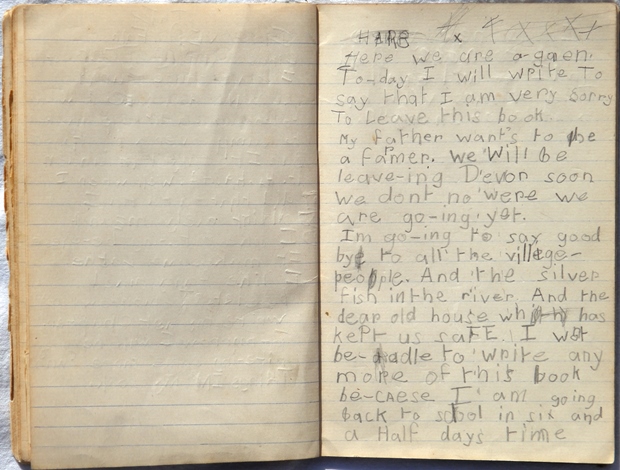 Here we are a-gaen.
To-day I will write To
say that I am very sorry
To Leave this book.
My father want's to be
a farmer. We Will be
leave-ing D'evon soon
we dont no were we
are go-ing yet.
Im go-ing to say good
bye to all the village-
people. And the silver
fish in the river. And the
dear old house which has
kept us saFE. I wot
be-adle to write any
more of this book
be-caese I am going
back to schol in six and
a Half days time